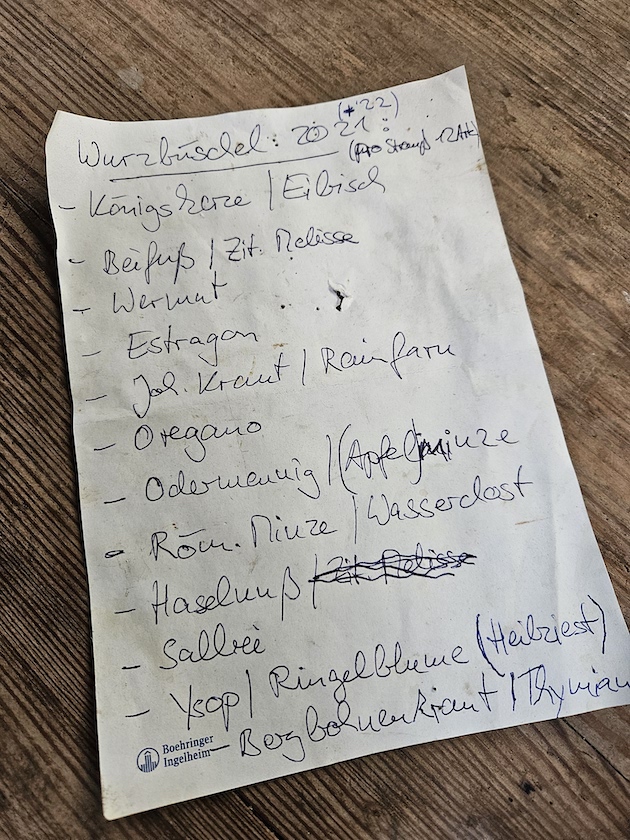 (+'22)
Wurzbüschel: 2021:
(pro Strauß 12 Art)
- Königskerze | Eibisch
- Beifuß | Zit. Melisse
- Wermut
- Estragon
- Joh. Kraut | Rainfarn
- Oregano
- Odermennig | (Apfel)minze
- Röm. Minze | Wasserdost
- Haselnuß | Zit. Melisse
- Salbei
- Ysop | Ringelblume (Heilziest)
- Bergbohnenkraut | Thymian
Boehringer
Ingelheim